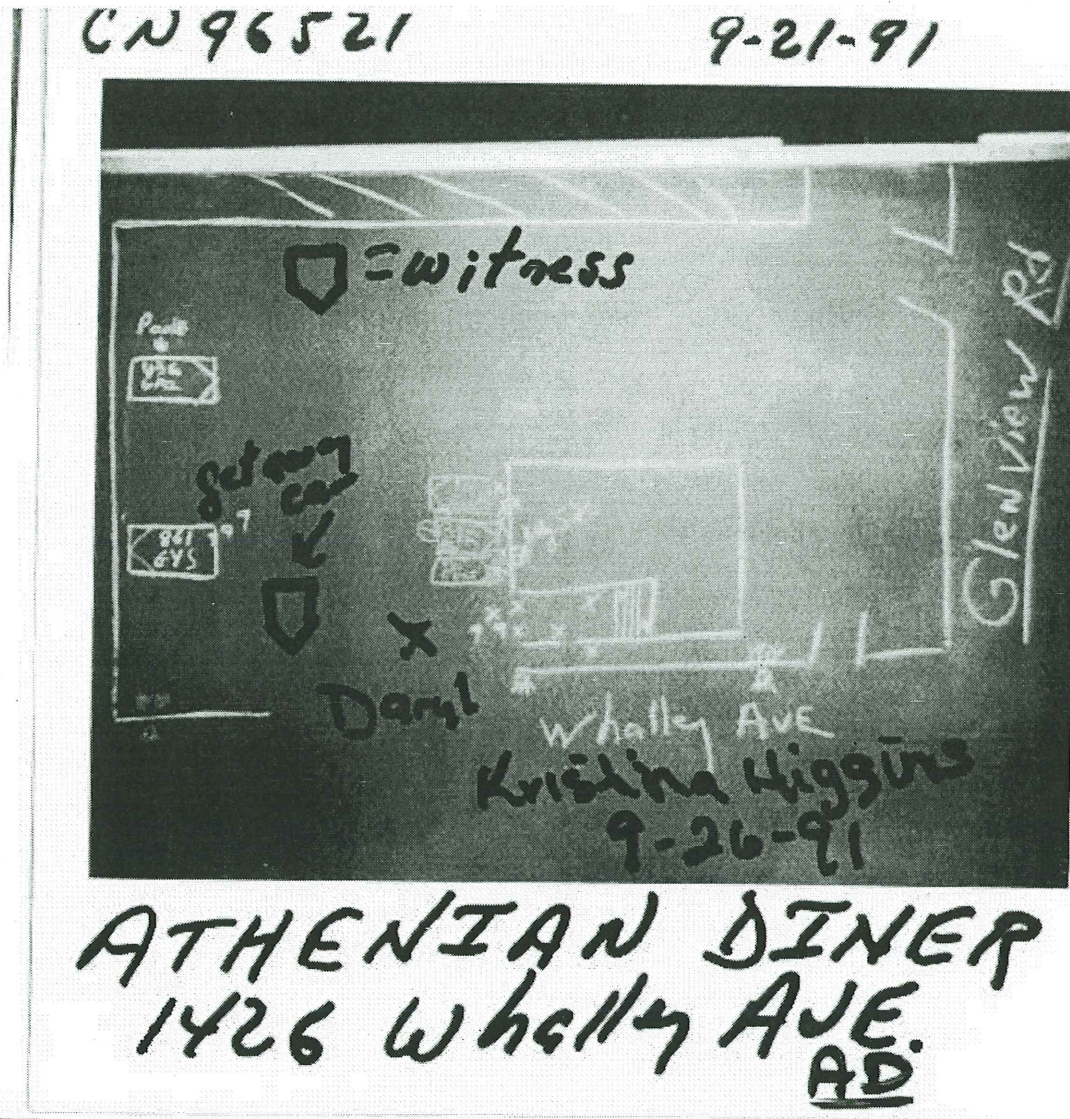 CN 96521 9-21-91
= witness
Glenview Rd
get away
car
861
EYS
X
Daryl
Whalley AVE
Kristina Higgins
9-26-91
ATHENIAN DINER
1426 Whalley AVE.
AD